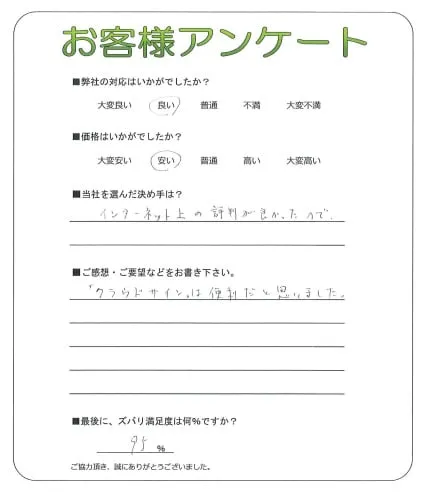 お客様アンケート
■弊社の対応はいかがでしたか?
大変良い 良い 普通 不満 大変不満
■価格はいかがでしたか?
大変安い 安い 普通 高い 大変高い
■当社を選んだ決め手は?
インターネット上の評判が良かったので、
■ご感想・ご要望などをお書き下さい。
「クラウドサイン」は便利だと思いました。
■最後に、ズバリ満足度は何%ですか?
95 %
ご協力頂き、誠にありがとうございました。